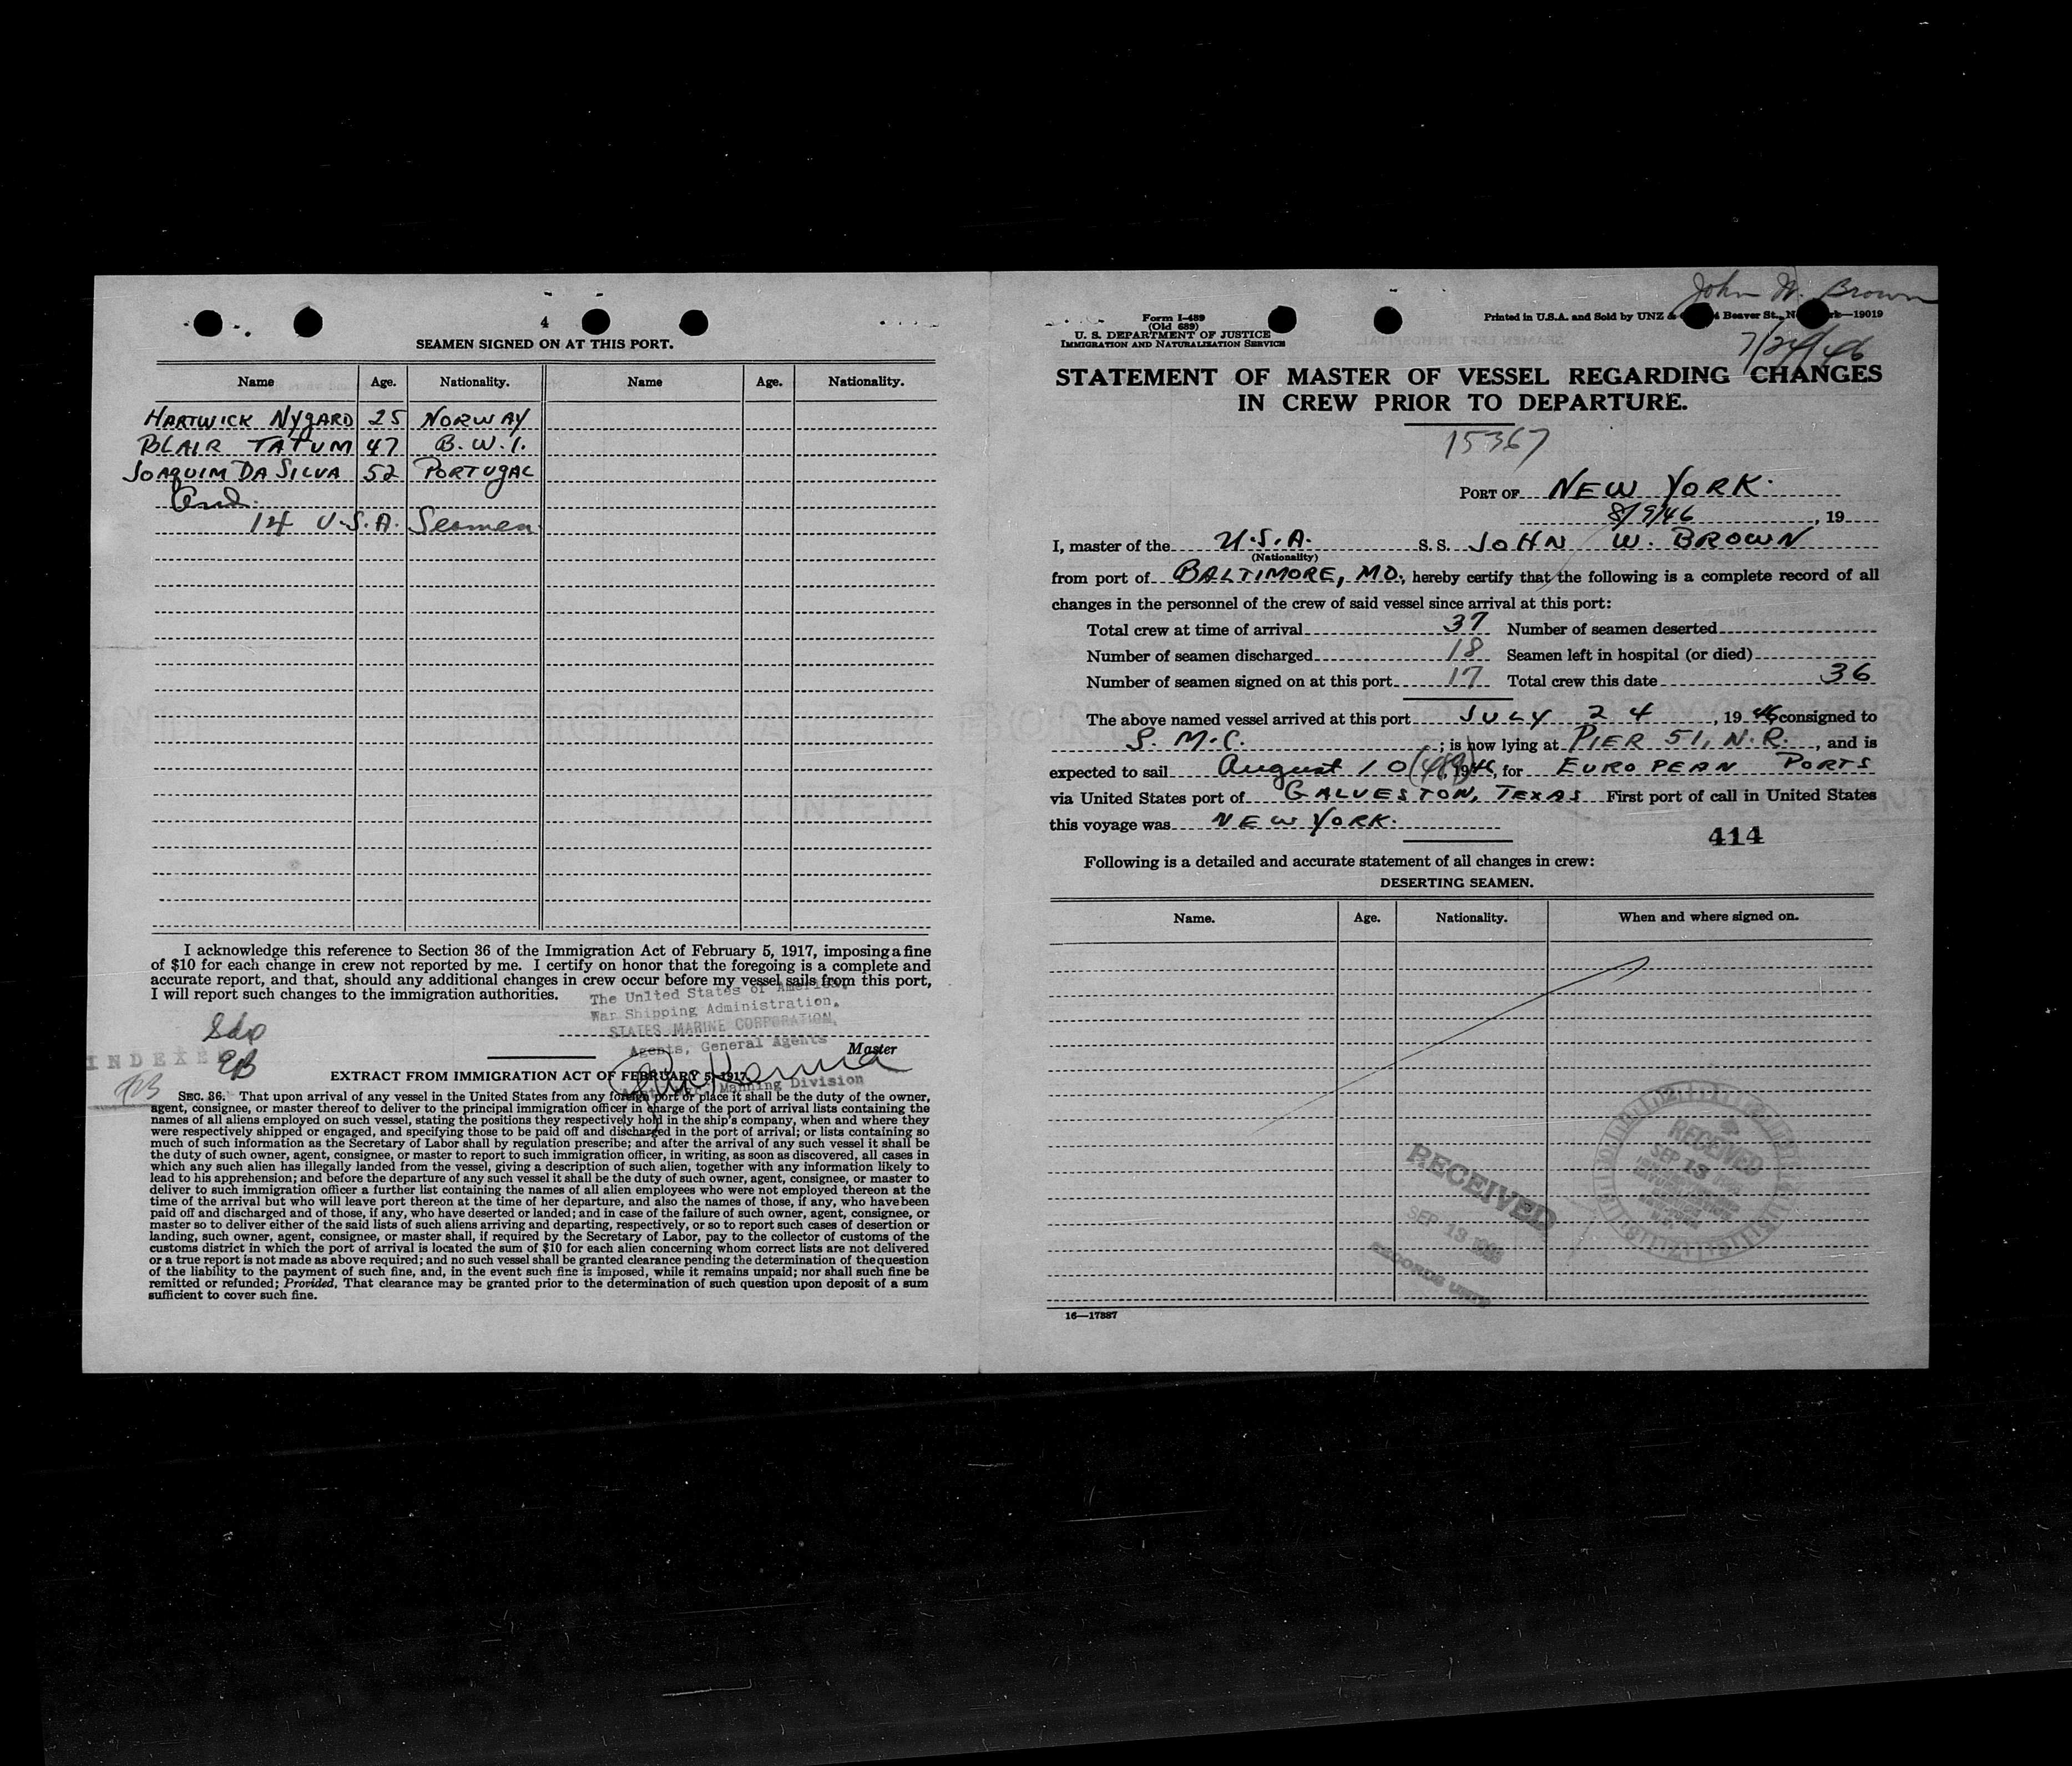 4
SEAMEN SIGNED ON AT THIS PORT.
Name Age. Nationality. Name Age. Nationality.
HARTWICK NYGARD 25 NORWAY
BLAIR TATUM 47 B.W.I.
JOAQUIM DA SILVA 52 PORTUGAL
And
14 U.S.A. Seamen
I acknowledge this reference to Section 36 of the Immigration Act of February 5, 1917, imposing a fine
of $10 for each change in crew not reported by me. I certify on honor that the foregoing is a complete and
accurate report, and that, should any additional changes in crew occur before my vessel sails from this port,
I will report such changes to the immigration authorities.
The United States of America.
War Shipping Administration.
STATES MARINE CORPORATION,
Agents, General Agents
Master
Manning Division
INDEXED
EXTRACT FROM IMMIGRATION ACT OF FEBRUARY 5, 1917.
SEC. 36. That upon arrival of any vessel in the United States from any foreign port or place it shall be the duty of the owner,
agent, consignee, or master thereof to deliver to the principal immigration officer in charge of the port of arrival lists containing the
names of all aliens employed on such vessel, stating the positions they respectively hold in the ship's company, when and where they
were respectively shipped or engaged, and specifying those to be paid off and discharged in the port of arrival; or lists containing so
much of such information as the Secretary of Labor shall by regulation prescribe; and after the arrival of any such vessel it shall be
the duty of such owner, agent, consignee, or master to report to such immigration officer, in writing, as soon as discovered, all cases in
which any such alien has illegally landed from the vessel, giving a description of such alien, together with any information likely to
lead to his apprehension; and before the departure of any such vessel it shall be the duty of such owner, agent, consignee, or master to
deliver to such immigration officer a further list containing the names of all alien employees who were not employed thereon at the
time of the arrival but who will leave port thereon at the time of her departure, and also the names of those, if any, who have been
paid off and discharged and of those, if any, who have deserted or landed; and in case of the failure of such owner, agent, consignee, or
master so to deliver either of the said lists of such aliens arriving and departing, respectively, or so to report such cases of desertion or
landing, such owner, agent, consignee, or master shall, if required by the Secretary of Labor, pay to the collector of customs of the
customs district in which the port of arrival is located the sum of $10 for each alien concerning whom correct lists are not delivered
or a true report is not made as above required; and no such vessel shall be granted clearance pending the determination of the question
of the liability to the payment of such fine, and, in the event such fine is imposed, while it remains unpaid; nor shall such fine be
remitted or refunded; Provided, That clearance may be granted prior to the determination of such question upon deposit of a sum
sufficient to cover such fine.
John W. Brown
7/24/46
Form I-489
(Old 689)
U. S. DEPARTMENT OF JUSTICE
IMMIGRATION AND NATURALIZATION SERVICE
Printed in U.S.A. and Sold by UNZ & Beaver St., —19019
STATEMENT OF MASTER OF VESSEL REGARDING CHANGES
IN CREW PRIOR TO DEPARTURE.
15367
PORT OF NEW YORK.
8/9/46, 19
I, master of the U.S.A. S. S. JOHN W. BROWN
(Nationality)
from port of BALTIMORE, MD., hereby certify that the following is a complete record of all
changes in the personnel of the crew of said vessel since arrival at this port:
Total crew at time of arrival 37 Number of seamen deserted
Number of seamen discharged 18 Seamen left in hospital (or died)
Number of seamen signed on at this port 17 Total crew this date 36
The above named vessel arrived at this port JULY 24, 19 46 consigned to
S. M.C. ; is now lying at PIER 51, N.R., and is
expected to sail August 10, 1946, for EUROPEAN PORTS
via United States port of GALVESTON, TEXAS First port of call in United States
this voyage was NEW YORK.
414
Following is a detailed and accurate statement of all changes in crew:
DESERTING SEAMEN.
Name. Age. Nationality. When and where signed on.
RECEIVED
SEP 13
RECEIVED
SEP 13
RECORDS UNIT
16—17887